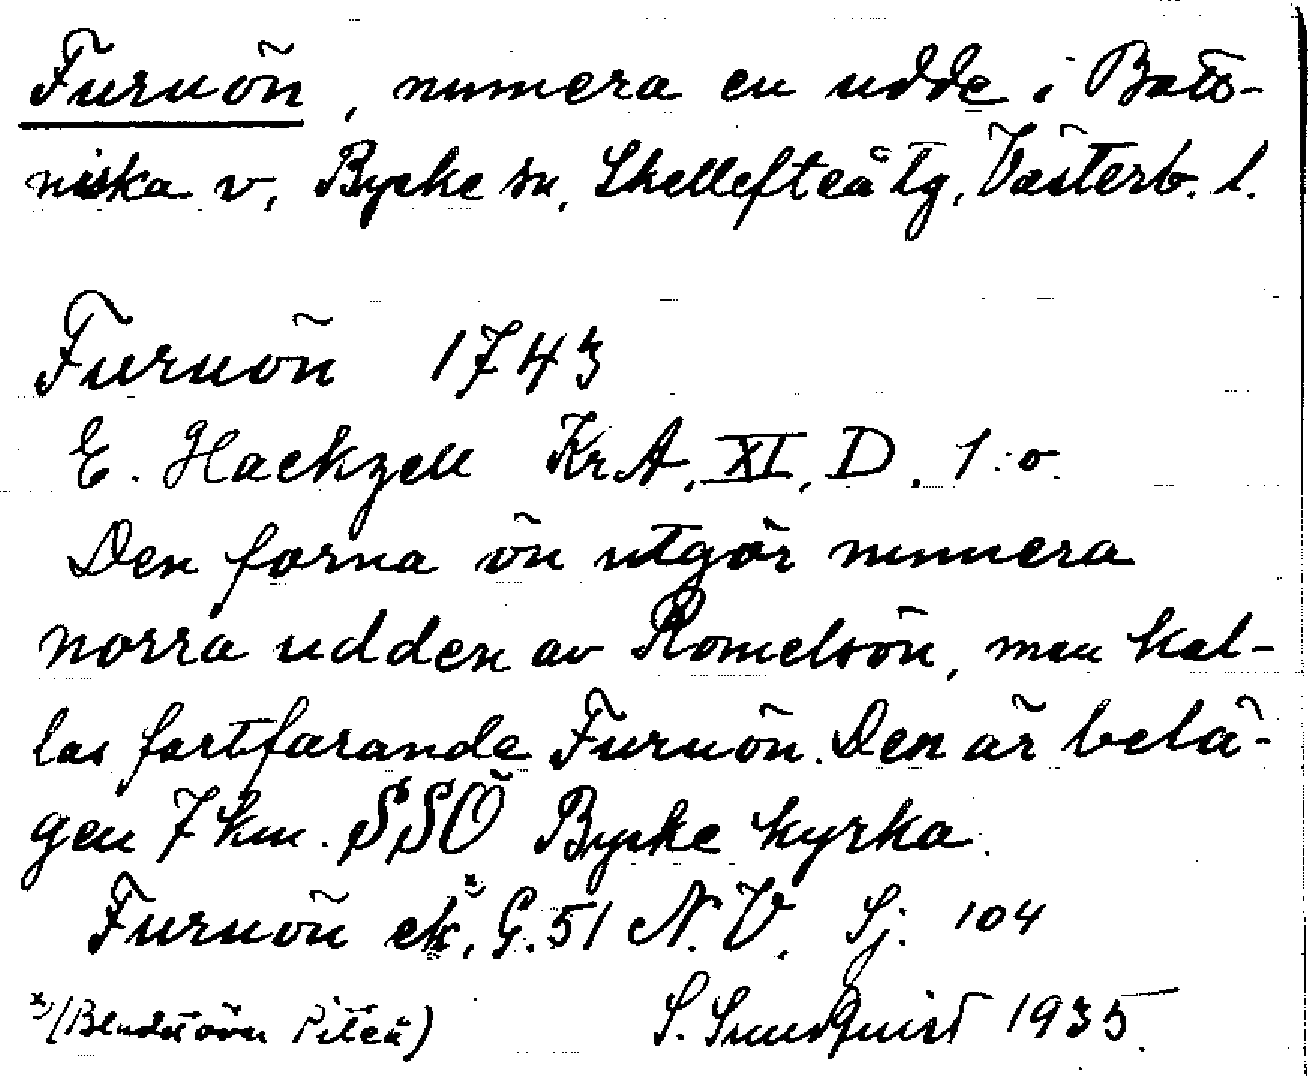 Furuön, numera en udde i Bats-
niska v, Byske sn, Skellefteå tg, Västerb. l.
Furuön 1743
E. Hackzell Kr.A. XI, D. 1:o.
Den forna ön utgör numera
norra udden av Romelsön, men kal-
las fortfarande Furuön. Den är belä-
gen 7 km. SSÖ Byske kyrka.
Furuön ek.x) G. 51 N.V. Sj. 104
x) (Piteå)
S. Sundquist 1935.